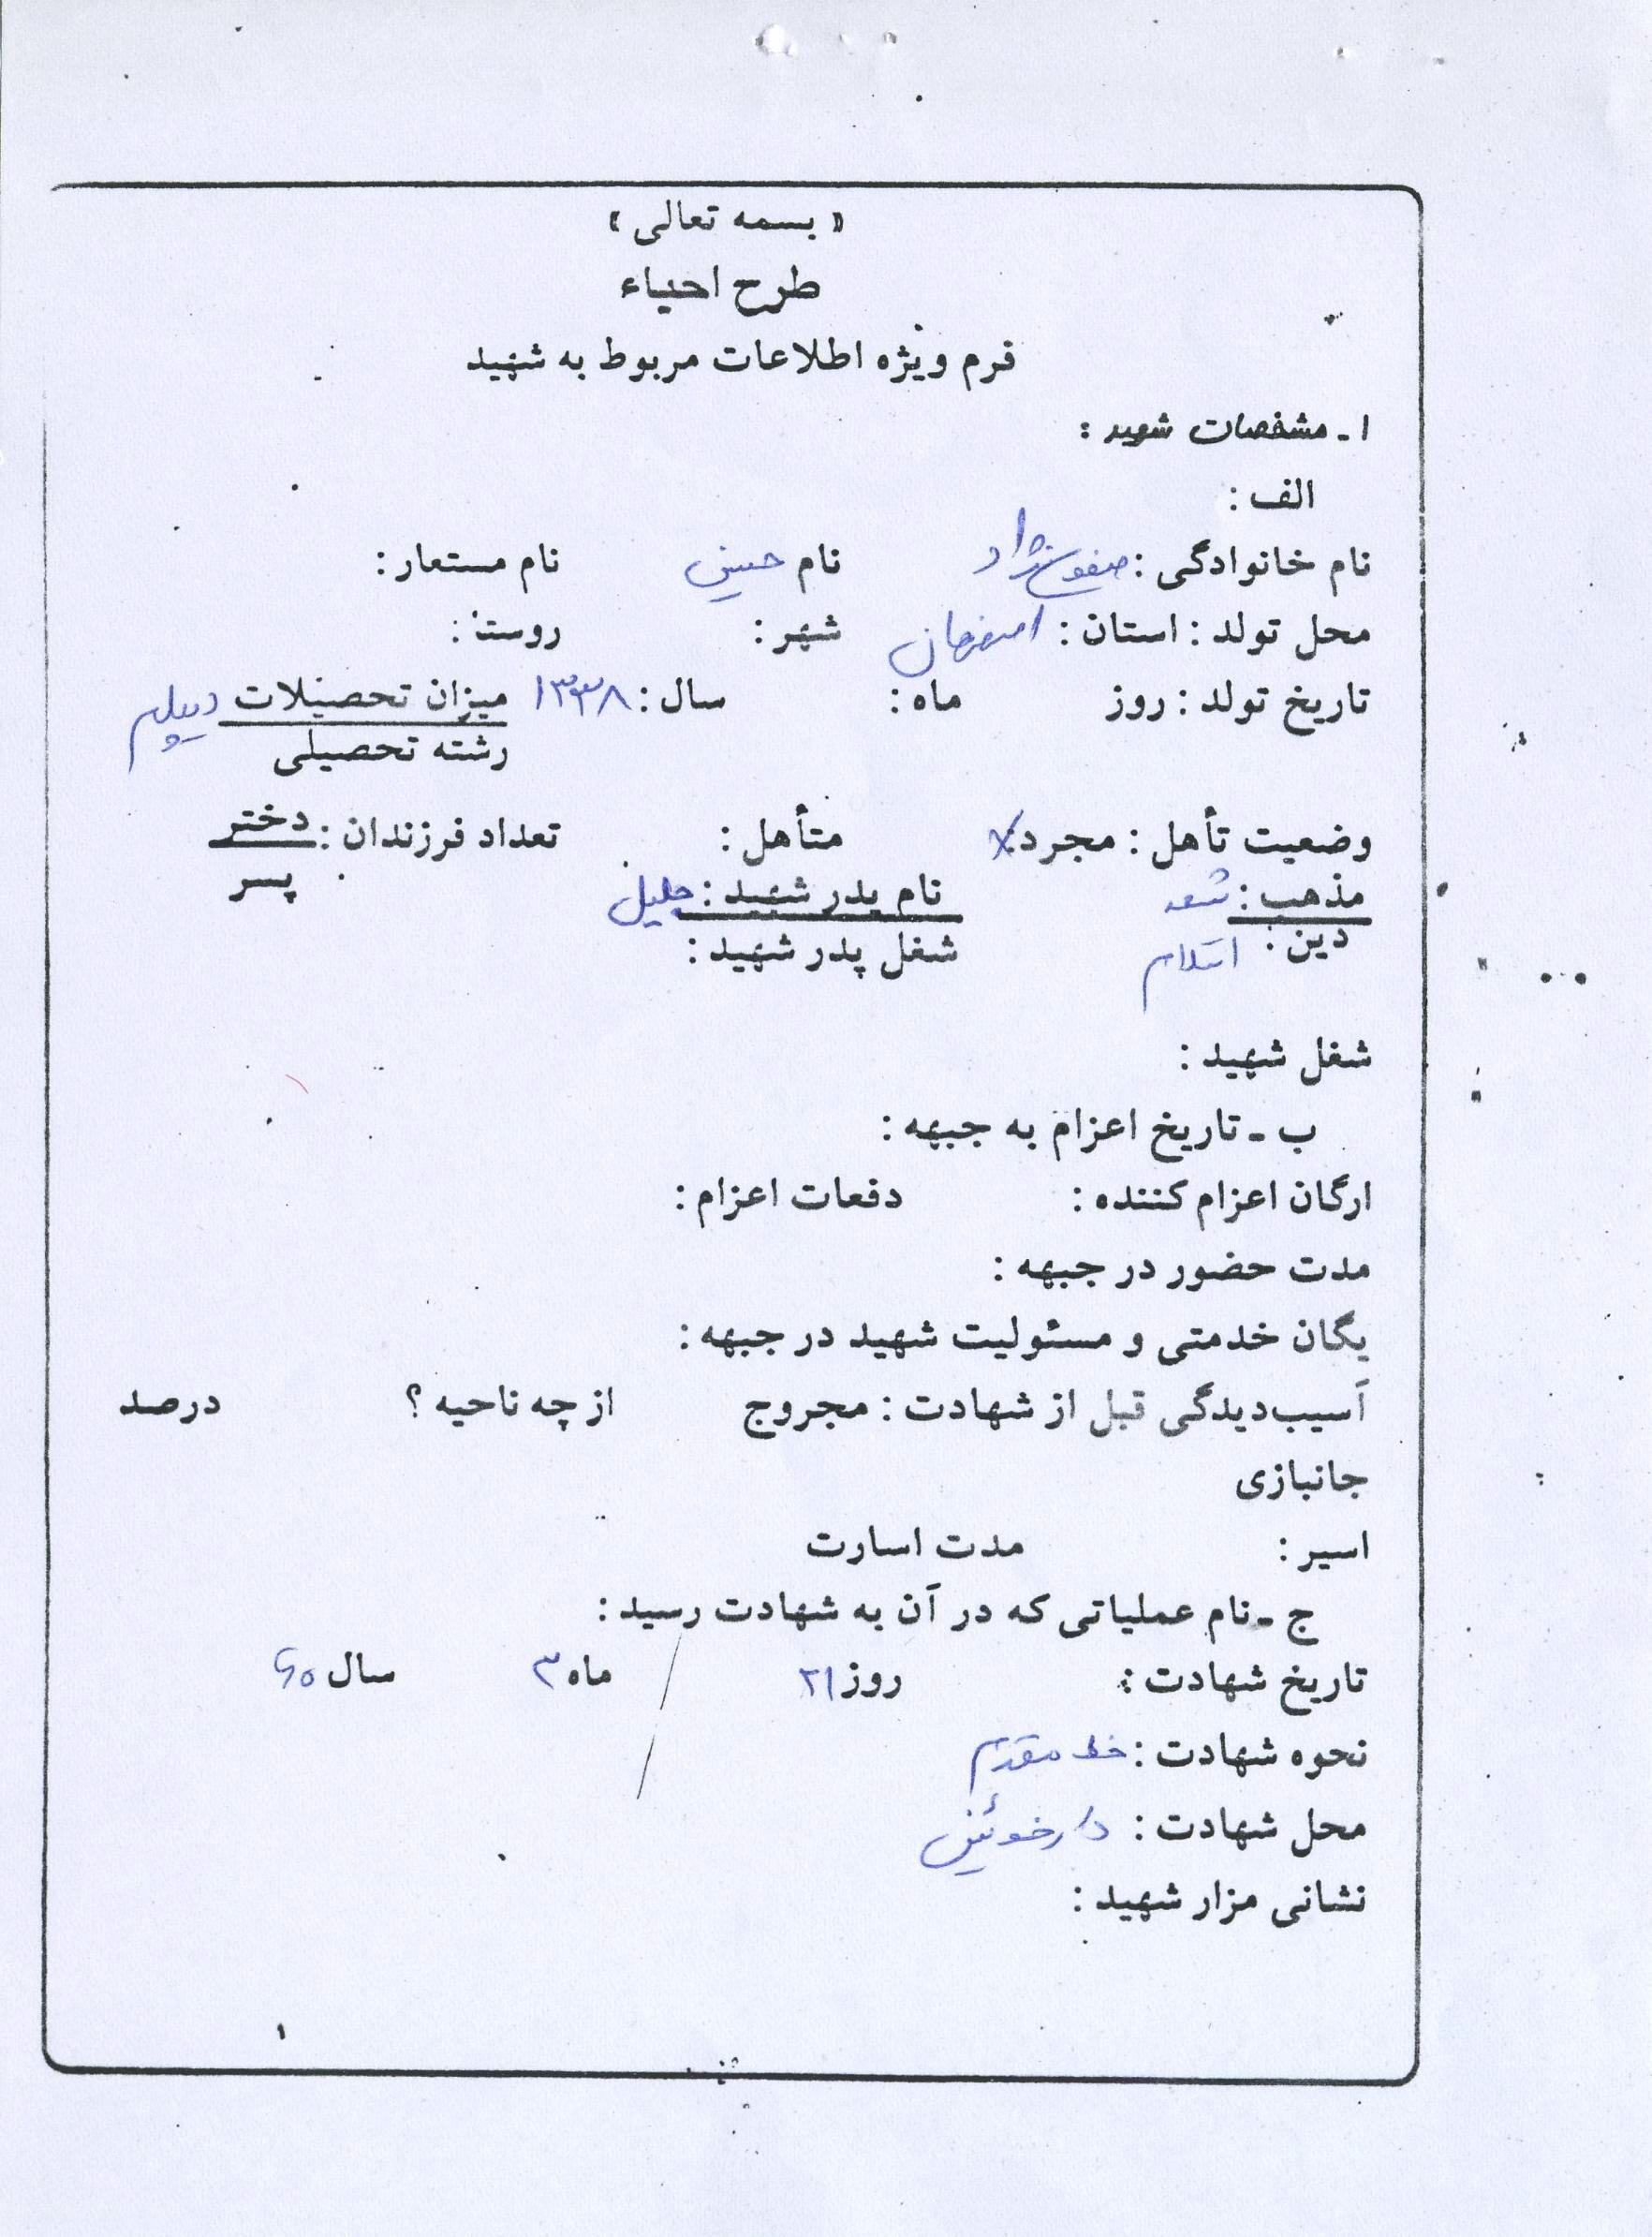 « بسمه تعالی »
طرح احیاء
فرم ویژه اطلاعات مربوط به شهید
۱ـ مشخصات شهید :
الف :
نام خانوادگی : نام حسین نام مستعار :
محل تولد : استان : اصفهان شهر : روستا :
تاریخ تولد : روز ماه : سال : ۱۳۳۸ میزان تحصیلات دیپلم
رشته تحصیلی
وضعیت تأهل : مجرد : X متأهل : تعداد فرزندان : دختر
پسر
مذهب : شیعه نام پدر شهید : جلیل
دین : اسلام شغل پدر شهید :
شغل شهید :
ب ـ تاریخ اعزام به جبهه :
ارگان اعزام کننده : دفعات اعزام :
مدت حضور در جبهه :
یگان خدمتی و مسئولیت شهید در جبهه :
آسیب‌دیدگی قبل از شهادت : مجروح از چه ناحیه ؟ درصد
جانبازی
اسیر : مدت اسارت
ج ـ نام عملیاتی که در آن به شهادت رسید :
تاریخ شهادت : روز ۲۱ ماه ۳ سال ۶۰
نحوه شهادت : خط مقدم
محل شهادت : دارخوئین
نشانی مزار شهید :
۱